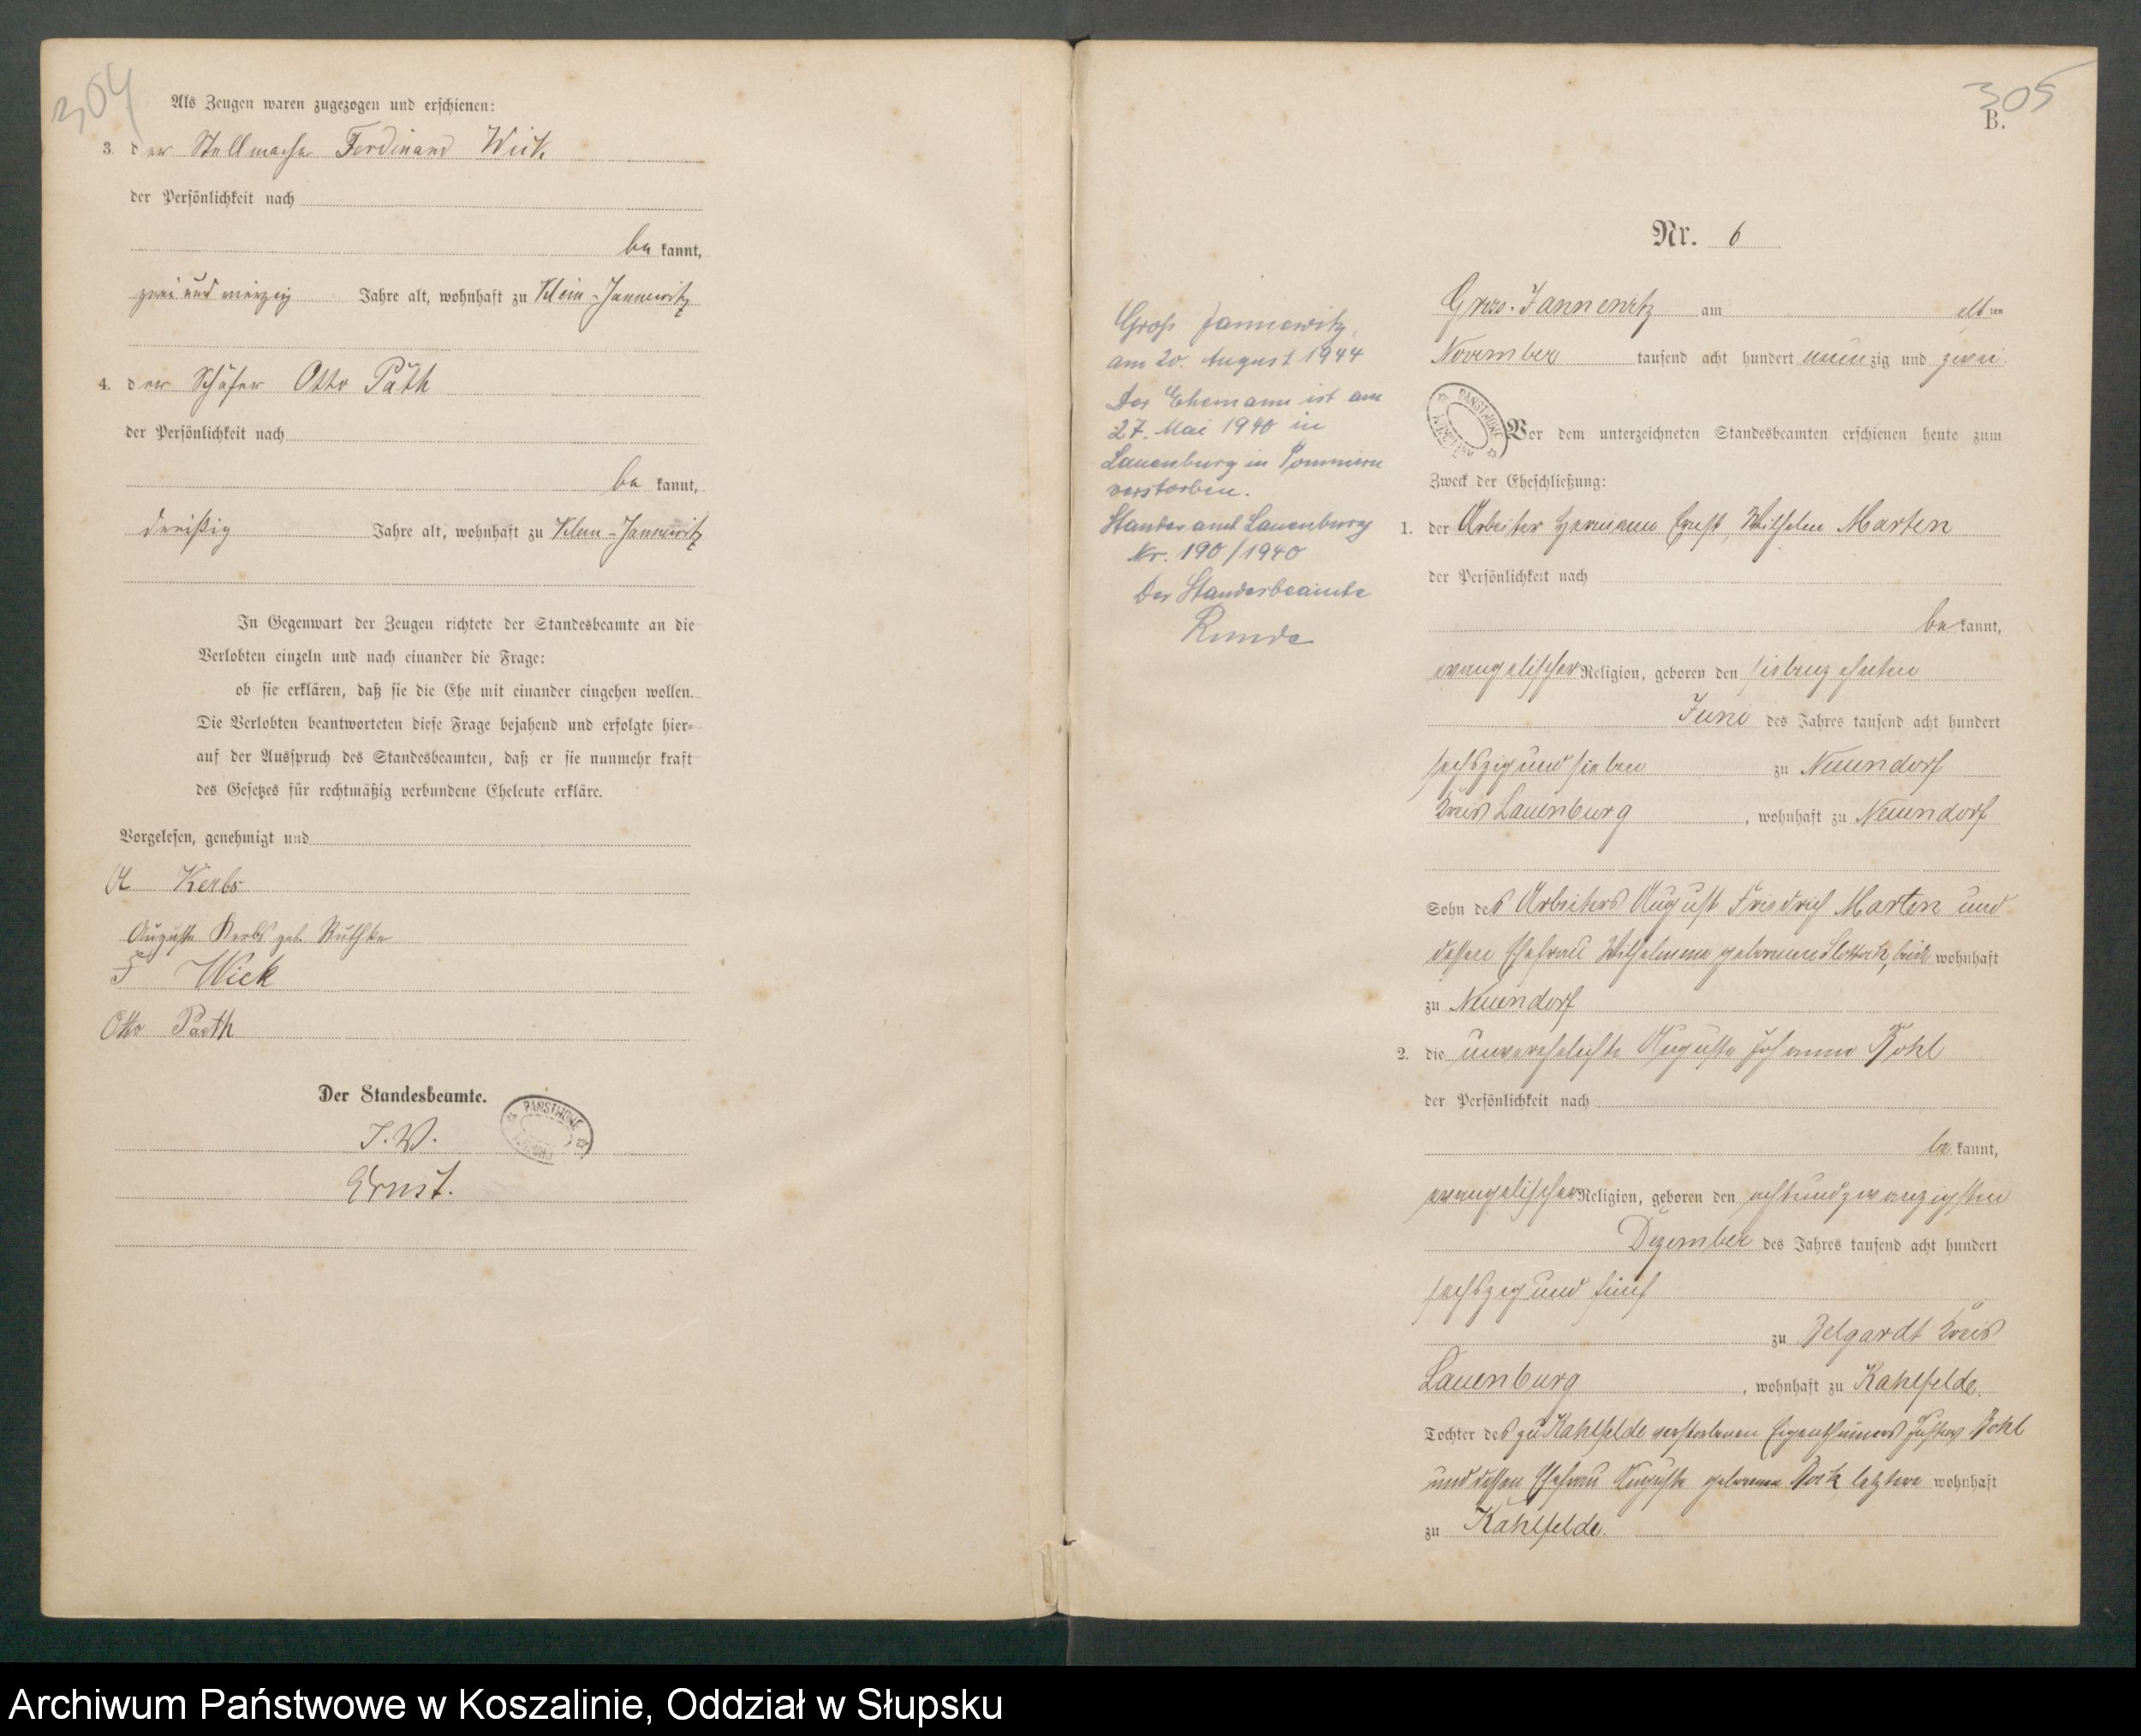 304
Als Zeugen waren zugezogen und erschienen:
3. der Stellmacher Ferdinand Wick
der Persönlichkeit nach
be kannt,
zwei und vierzig Jahre alt, wohnhaft zu Klein-Jannewitz
4. der Schäfer Otto Päth
der Persönlichkeit nach
be kannt,
dreißig Jahre alt, wohnhaft zu Klein-Jannewitz
In Gegenwart der Zeugen richtete der Standesbeamte an die
Verlobten einzeln und nach einander die Frage:
ob sie erklären, daß sie die Ehe mit einander eingehen wollen.
Die Verlobten beantworteten diese Frage bejahend und erfolgte hier-
auf der Ausspruch des Standesbeamten, daß er sie nunmehr kraft
des Gesetzes für rechtmäßig verbundene Eheleute erkläre.
Vorgelesen, genehmigt und
A Kerbs
Auguste Kerbs geb. Ruthke
F Wick
Otto Paeth
Der Standesbeamte.
J. V.
PAŃSTWOWE
Ernst.
305
B.
Nr. 6
Gross-Jannewitz am elf ten
November tausend acht hundert neun zig und zwei.
PAŃSTWOWE
Vor dem unterzeichneten Standesbeamten erschienen heute zum
Zweck der Eheschließung:
1. der Arbeiter Hermann Ernst Wilhelm Marten
der Persönlichkeit nach
be kannt,
evangelischer Religion, geboren den siebenzehnten
Juni des Jahres tausend acht hundert
sechszig und sieben zu Neuendorf
Kreis Lauenburg, wohnhaft zu Neuendorf
Sohn des Arbeiters August Friedrich Marten und
dessen Ehefrau Wilhelmine geborenen beide wohnhaft
zu Neuendorf
2. die unverehelichte Auguste Johanna Pohl
der Persönlichkeit nach
be kannt,
evangelischer Religion, geboren den achtundzwanzigsten
Dezember des Jahres tausend acht hundert
sechszig und fünf
zu Belgardt Kreis
Lauenburg, wohnhaft zu Kahlfelde.
Tochter des zu Kahlfelde verstorbenen Eigenthümers Pohl
und dessen Ehefrau Auguste geborenen letztere wohnhaft
zu Kahlfelde.
Groß Jannewitz,
am 20. August 1944
Der Ehemann ist am
27. Mai 1940 in
Lauenburg in Pommern
verstorben.
Standesamt Lauenburg
Nr. 190/1940
Der Standesbeamte
Runde
Archiwum Państwowe w Koszalinie, Oddział w Słupsku